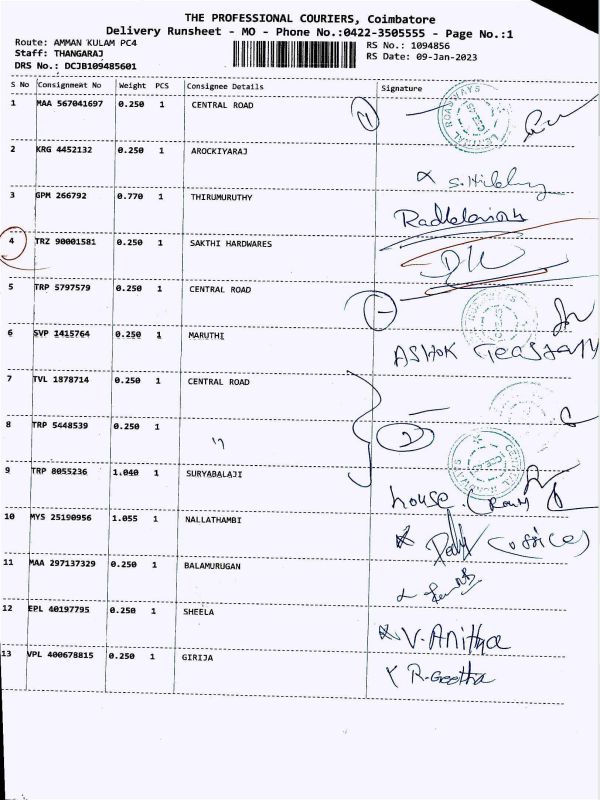 THE PROFESSIONAL COURIERS, Coimbatore
Delivery Runsheet - MO - Phone No.:0422-3505555 - Page No.:1
Route: AMMAN KULAM PC4 RS No.: 1094856
Staff: THANGARAJ RS Date: 09-Jan-2023
DRS No.: DCJB109485601
S No Consignment No Weight PCS Consignee Details Signature
1 MAA 567041697 0.250 1 CENTRAL ROAD
2 KRG 4452132 0.250 1 AROCKIYARAJ
3 GPM 266792 0.770 1 THIRUMURUTHY
4 TRZ 90001581 0.250 1 SAKTHI HARDWARES
5 TRP 5797579 0.250 1 CENTRAL ROAD
6 SVP 1415764 0.250 1 MARUTHI
7 TVL 1878714 0.250 1 CENTRAL ROAD
8 TRP 5448539 0.250 1 "
2
9 TRP 8055236 1.040 1 SURYABALAJI house
10 MYS 25190956 1.055 1 NALLATHAMBI (office)
11 MAA 297137329 0.250 1 BALAMURUGAN
12 EPL 40197795 0.250 1 SHEELA V. Anitha
13 VPL 400678815 0.250 1 GIRIJA R. Geetha